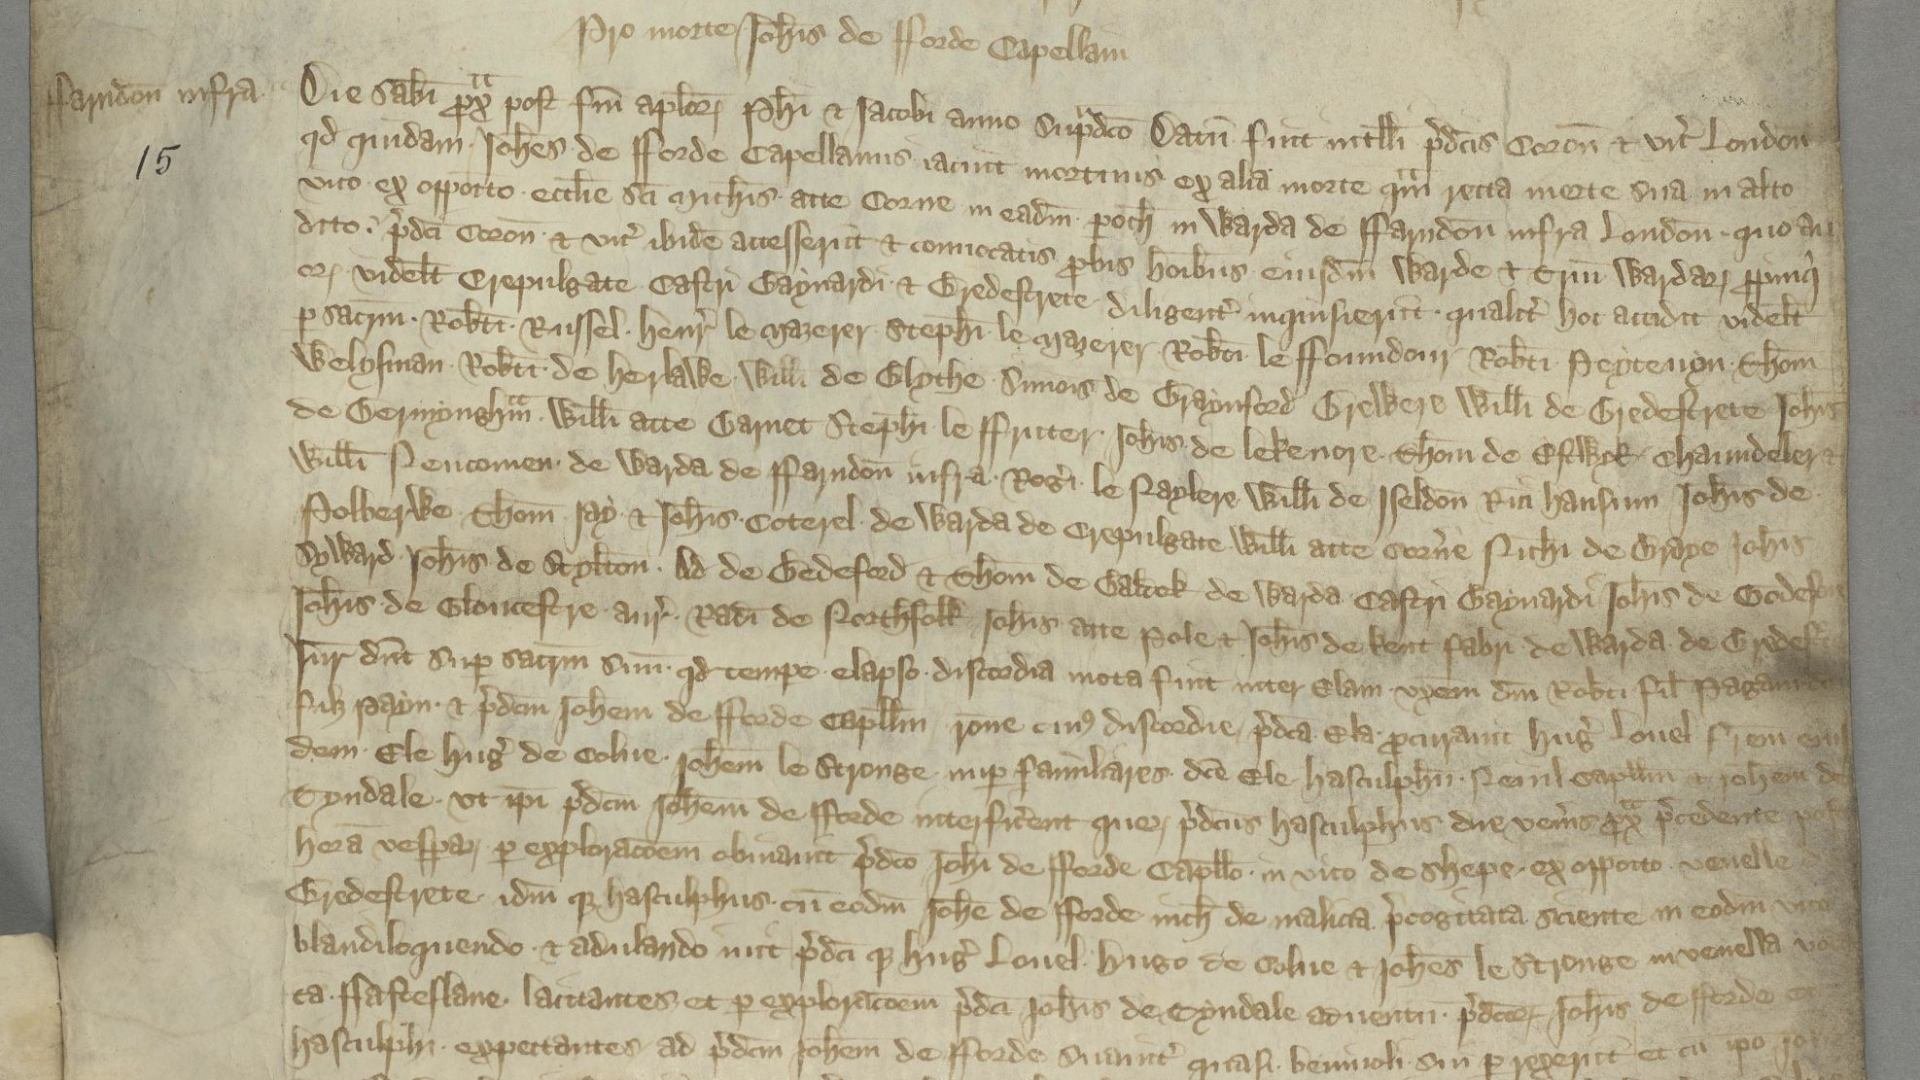 Pro morte Joh̄is de fforde Capellani
ffarndon̄ infra
15
Die Sab̄ti p̄xa post fm̄ aplor̄ Ph̄i et Jacobi anno Sup̄dc̄o Datū fuit intell̄i p̄dc̄is Coron̄ et vic̄ London̄
qd quidam Joh̄es de fforde Capellanus iacuit mortuus ex alia morte qam recta morte sua in alto
vico ex opposito eccl̄ie sc̄i Mich̄is atte Corne in ead̄m poch̄ in Warda de ffarndon̄ infra London̄ quo au
dito p̄dc̄i Coron̄ et vic̄ ibid̄e accesserūt et conuocatis p̄bis ho̅ibus eiusd̄m Warde et triū Wardar̄ p̄pinq̄
or̄ videlt̄ Crepulgate Castri Baynardi et Bredestrete diligent̄ inquisierūt qualit̄ hoc accidit videlt̄
p sacr̄m Rob̄ti Russel henr̄ le Mazerer Steph̄i le Mazerer Rob̄ti le ffoundour Rob̄ti Peytenyn Thom̄
Welysman Rob̄ti de herlawe Will̄i de Blythe Simonis de Graynford Brewere Will̄i de Bredestrete Joh̄is
de Bermyngham Will̄i atte Barnet Steph̄i le ffritter Joh̄is de lekenore Thom̄ de Estwyk Chaundeler et
Will̄i Neucomen de Warda de ffarndon̄ infra Roḡi le Naylere Will̄i de Iseldon̄ Ric̄i hansum Joh̄is de
Polberwe Thom̄ Jay et Joh̄is Coterel de Warda de Crepulgate Will̄i atte Corn̄e Nich̄i de Graye Joh̄is
Syward Joh̄is de Stylton̄ Ad̄ de Bedeford et Thom̄ de Baldok de Warda Castri Baynardi Joh̄is de Godesf
Joh̄is de Gloucestre aur̄ Rad̄i de Northfolk Joh̄is atte Pole et Joh̄is de kent fabri de Warda de Bredest
Jur̄ dn̄t Sup sacr̄m suū qd tempe elapso discordia mota fuit inter Elam vx̄em dn̄i Rob̄ti fil̄ Pagani
fitz Payn et p̄dc̄m Joh̄em de fforde Capll̄m rōne cui9 discordie p̄dc̄a Ela p̄curauit huḡ Louel fr̄em eius
dem Ele huḡ de Colne Joh̄em le Stronge nup familiares dc̄e Ele hasculph̄ū Neuil capll̄m et Joh̄em de
Tyndale vt ip̄i p̄dc̄m Joh̄em de fforde interfic̄ent quor̄ p̄dc̄us hasculphus die ven̄is p̄xa p̄cedente post
horā vespar̄ p exploracōem obuiauit p̄dc̄o Joh̄i de fforde Capll̄o in vico de Chepe ex opposito venelle
Bredestrete id̄m q̄ hasculphus cū eod̄m Joh̄e de fforde nich̄ de malicia p̄cogitata sciente in eod̄m vico
blandiloquendo et adulando iuit p̄dc̄i q̄ huḡ Louel Hugo de Colne et Joh̄es le Stronge in venella voca
ta ffasteslane latitantes et p exploracōem p̄dc̄i Joh̄is de Tyndale aduentū p̄dc̄or̄ Joh̄is de fforde et
hasculphi expectantes ad p̄dc̄m Joh̄em de fforde Suauit̄ quasi beniuoli sui prexerūt et cū ip̄o